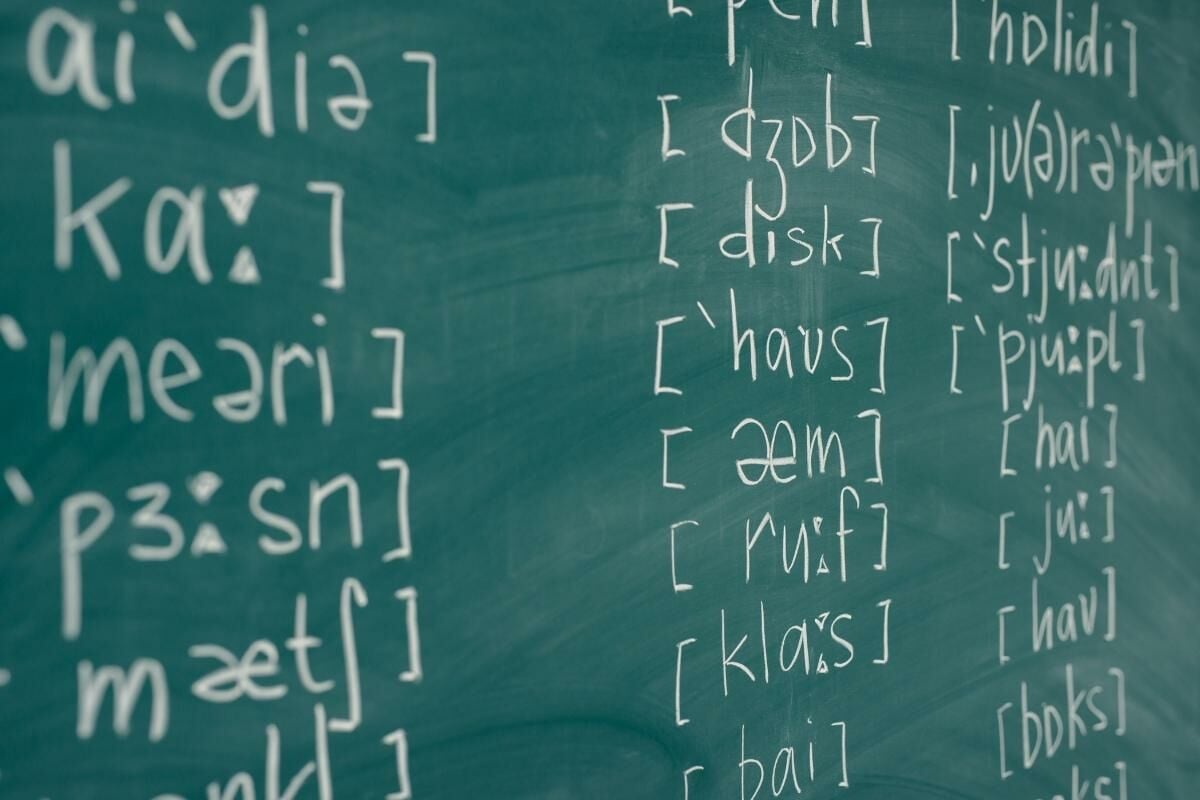 ai`diə]
kaː]
`meəri]
`pɜːsn]
mætʃ]
[pen]
[dʒɒb]
[disk]
[`haʊs]
[æm]
[ruːf]
[klaːs]
[bai]
[`hɒlidi]
[ˌjʊ(ə)rə`pɪən
[`stjuːdnt]
[`pjuːpl]
[hai]
[juː]
[haʊ]
[bɒks]